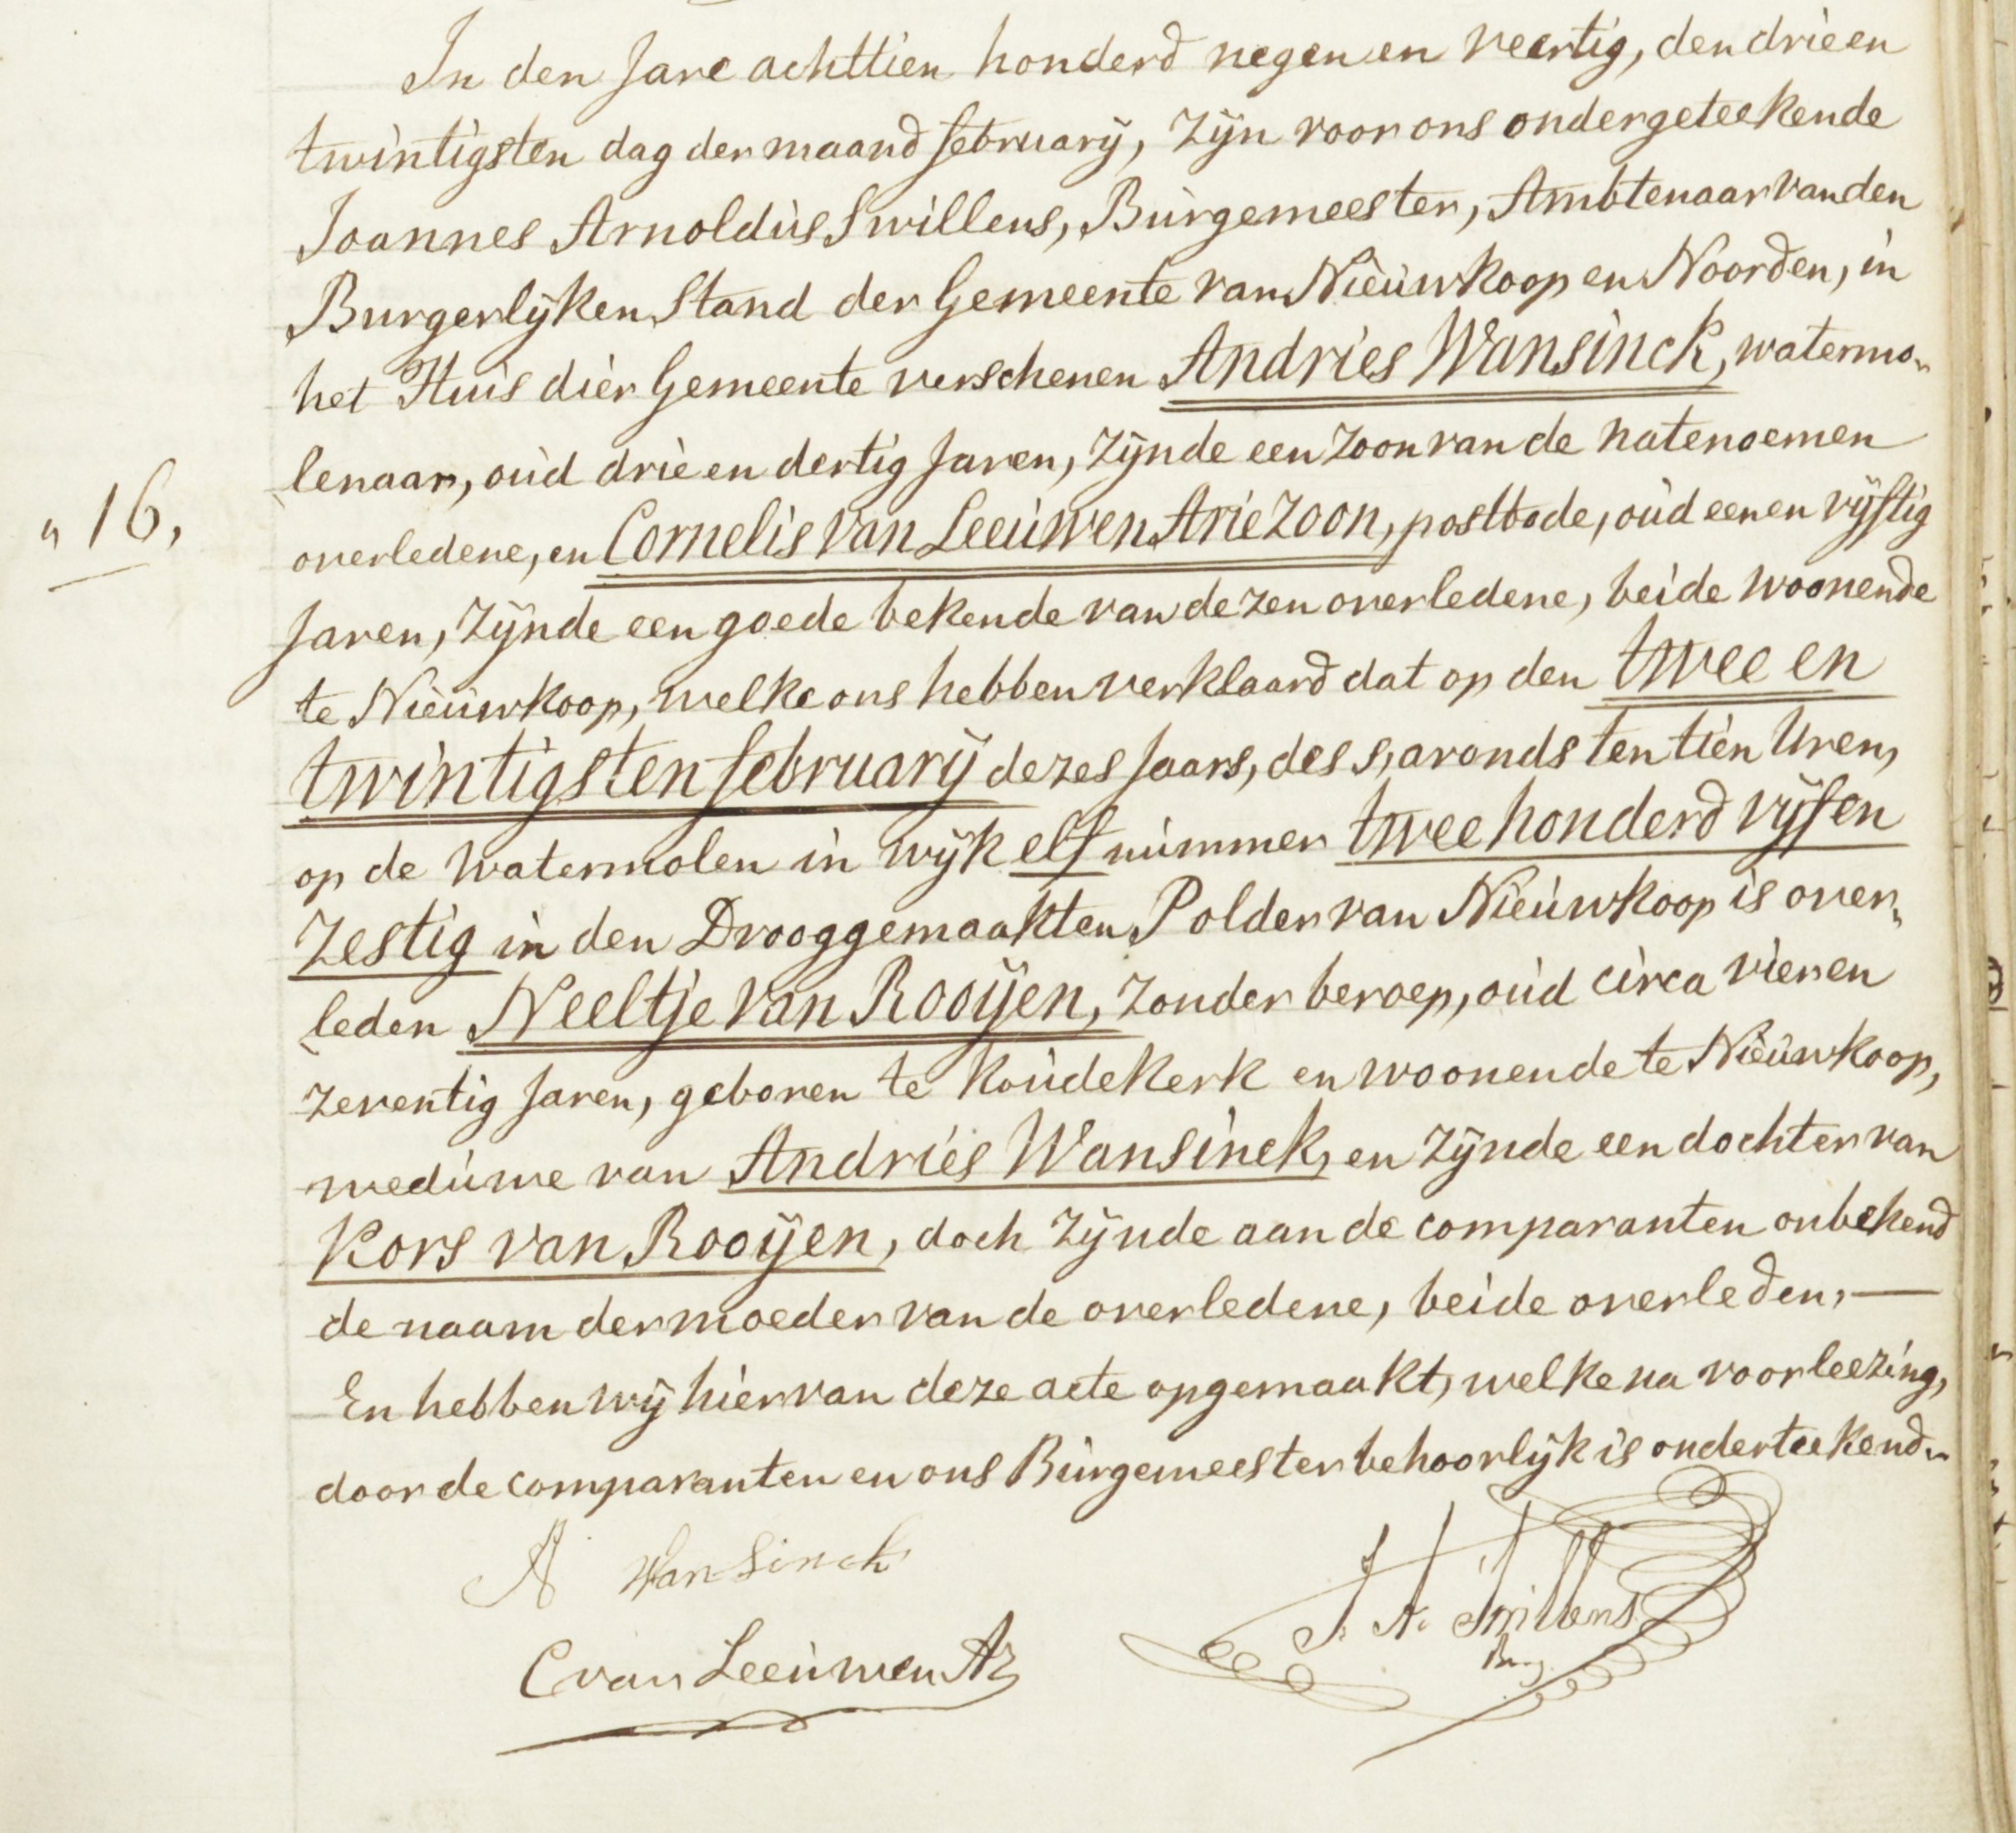 In den Jare achttien honderd negen en veertig, den drie en
twintigsten dag der maand february, zijn voor ons ondergeteekende
Joannes Arnoldus Swillens, Burgemeester, Ambtenaar van den
Burgerlijken Stand der Gemeente van Nieuwkoop en Noorden, in
het Huis dier Gemeente verschenen Andries Wansinck, watermo„
lenaar, oud drie en dertig Jaren, zijnde een zoon van de natenoemen
"16,
overledene, en Cornelis van Leeuwen Ariezoon, postbode, oud een en vijftig
Jaren, zijnde een goede bekende van dezen overledene, beide woonende
te Nieuwkoop, welke ons hebben verklaard dat op den twee en
twintigsten february dezes Jaars, des s,avonds ten tien Uren,
op de watermolen in wijk elf nummer twee honderd vijf en
zestig in den Drooggemaakten Polder van Nieuwkoop is over„
leden Neeltje van Rooijen, zonder beroep, oud circa vier en
zeventig Jaren, geboren te Koudekerk en woonende te Nieuwkoop,
weduwe van Andries Wansinck, en zijnde een dochter van
Kors van Rooijen, doch zijnde aan de comparanten onbekend
de naam der moeder van de overledene, beide overleden, —
En hebben wij hiervan deze acte opgemaakt, welke na voorleezing,
door de comparanten en ons Burgemeester behoorlijk is onderteekend.
A Wansinck
J. A. Swillens
Bur.
C van Leeuwen Az